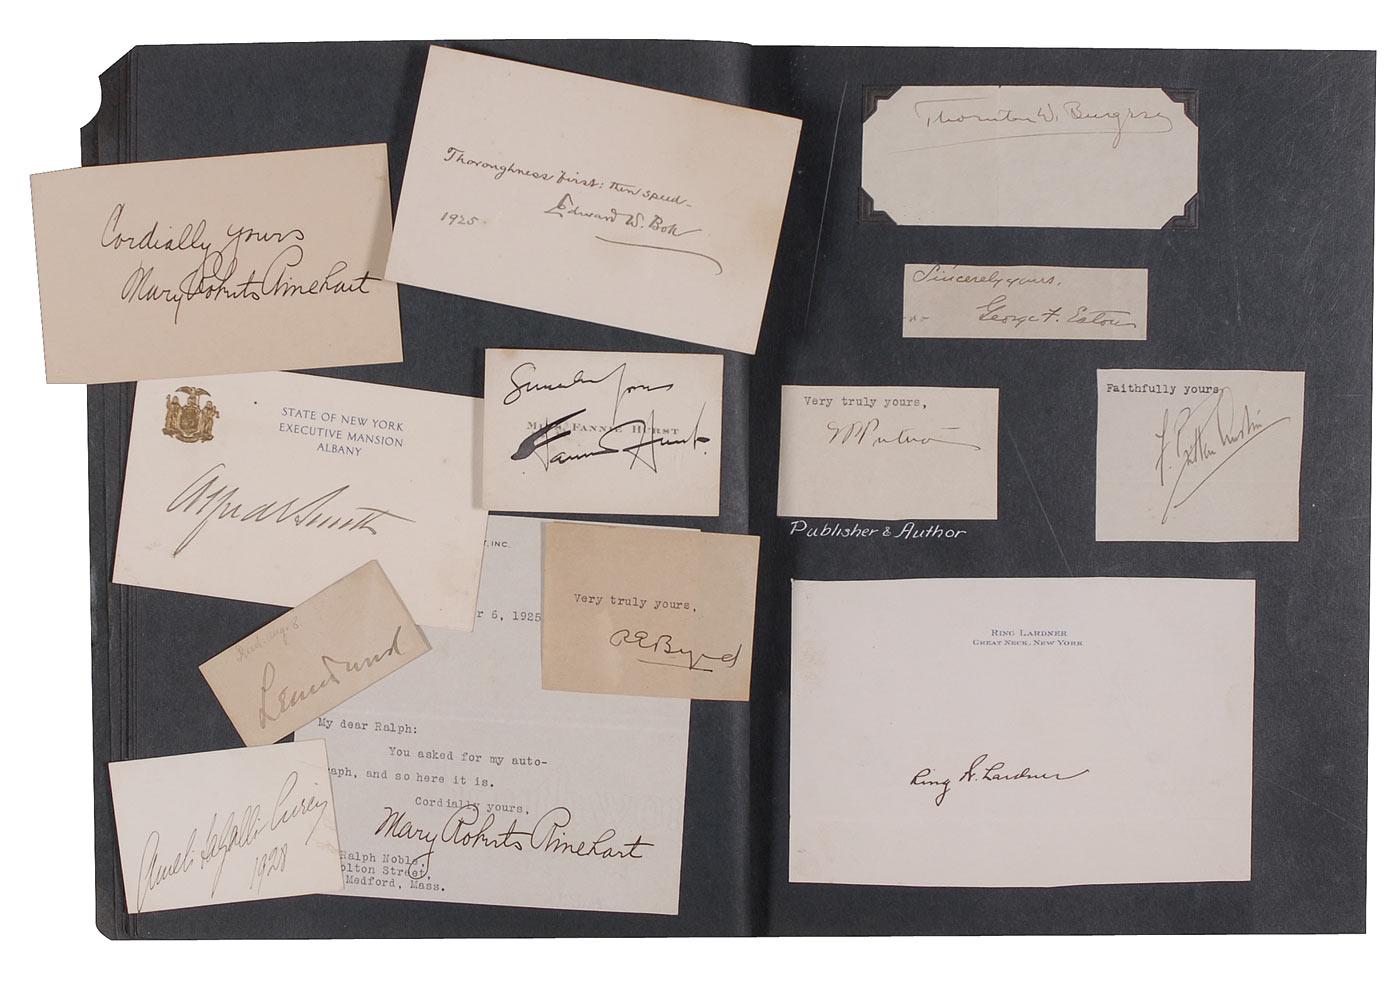 Cordially yours
Mary Roberts Rinehart
Thoroughness first: then speed-
Edward W. Bok
1925
STATE OF NEW YORK
EXECUTIVE MANSION
ALBANY
Alfred E Smith
Sincerely yours
MISS FANNIE HURST
Fannie Hurst
T, INC.
r 6, 1925
Very truly yours,
R E Byrd
My dear Ralph:
You asked for my auto-
raph, and so here it is.
Cordially yours,
Mary Roberts Rinehart
Ralph Noble,
olton Street,
Medford, Mass.
1928
Thornton W. Burgess
Sincerely yours,
George F. Eaton
Very truly yours,
Putnam
Publisher & Author
Faithfully yours,
RING LARDNER
GREAT NECK, NEW YORK
Ring W. Lardner